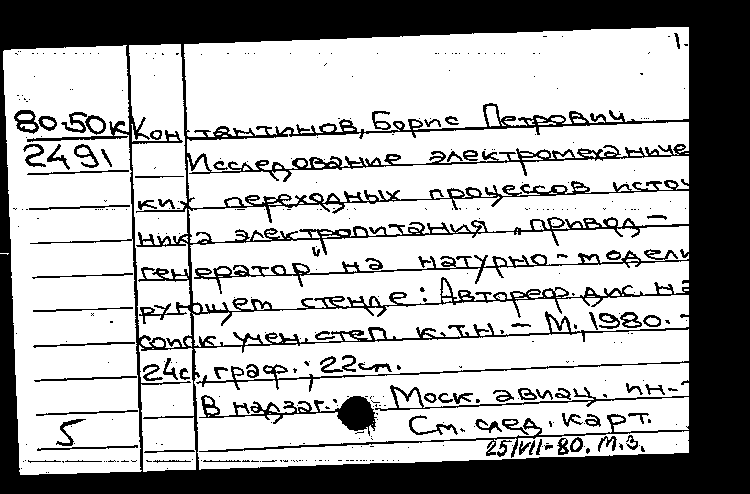 1.
80-50к Константинов, Борис Петрович.
2491 Исследование электромеханичес
ких переходных процессов источ
ника электропитания „привод-
генератор" на натурно-модели
рующем стенде: Автореф. дис. на
соиск. учен. степ. к.т.н. - М., 1980. -
24с., граф.; 22см.
В надзаг.: Моск. авиац. ин-т
5 См. след. карт.
25/VII-80. М.З.